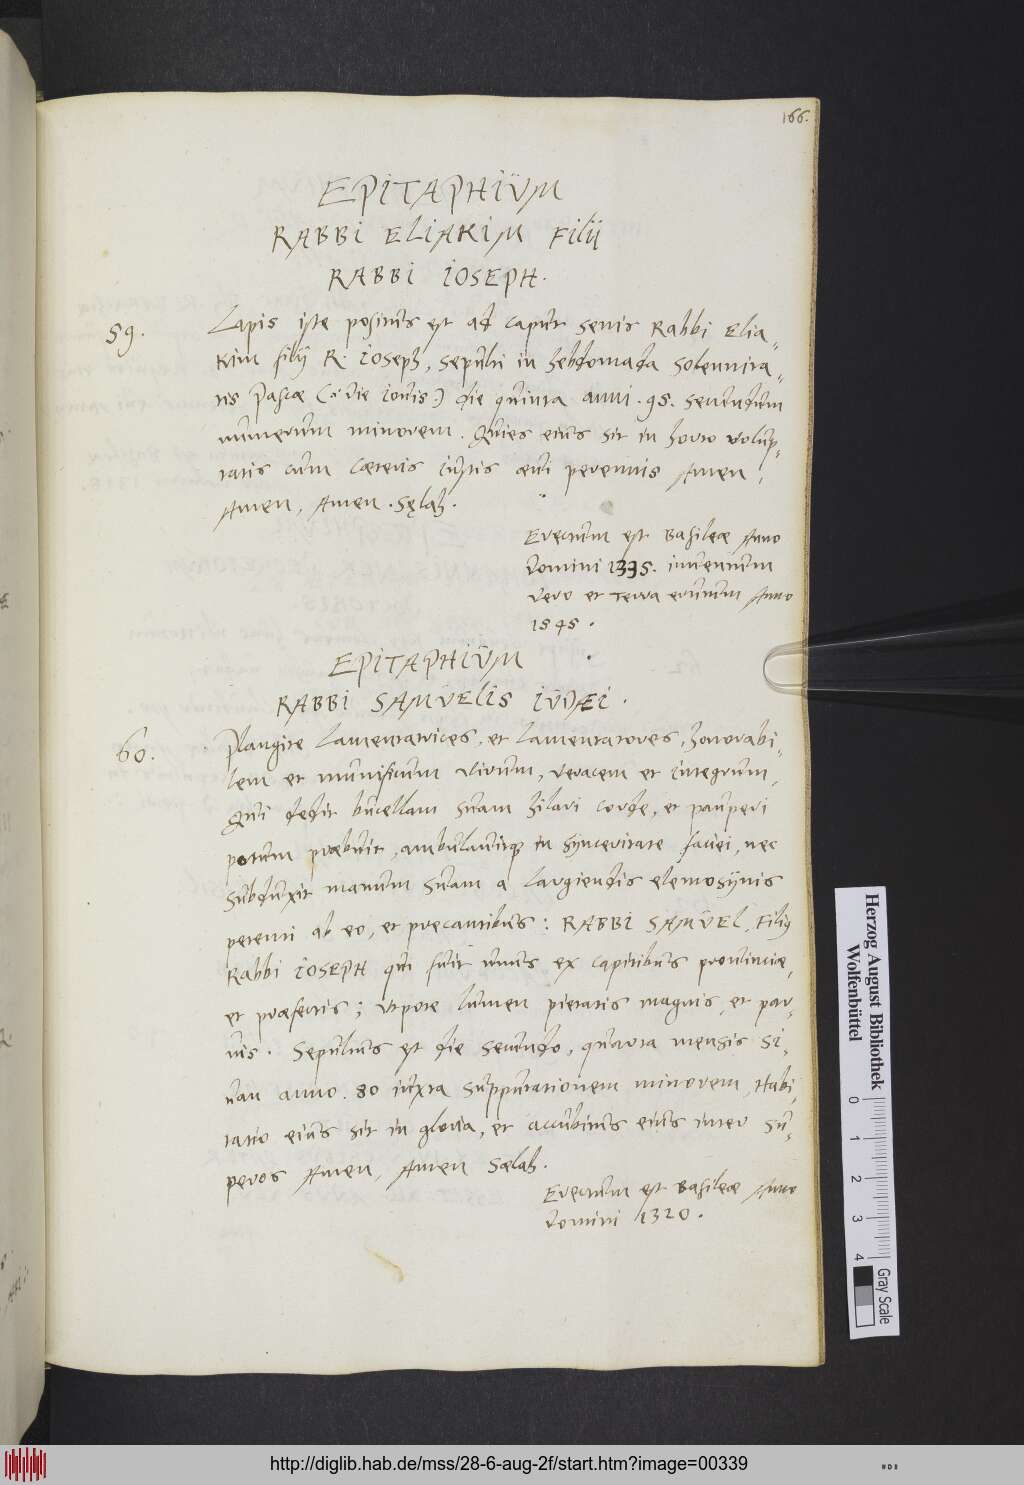 166.
EPITAPHIUM
RABBI ELIAKIM Filij
RABBI IOSEPH.
59.
Lapis iste positus est ad caput senis Rabbi Elia-
kim filij R. Ioseph, sepulti in hebdomada solennita-
tis Pascæ (:die Iovis:) die quinta anni .95. secundum
numerum minorem. Quies eius sit in horto volup-
tatis cum cæteris iustis ævi perennis Amen,
Amen, Amen. Sęlah.
Erectum est Basileæ Anno
Domini 1335. inventum
vero et terra erutum Anno
1545.
EPITAPHIUM
RABBI SAMUELIS IUDÆI.
60.
Plangite lamentatrices, et lamentatores, honorabi-
lem et munificum virum, veracem et integrum,
Qui dedit bucellam suam hilari corde, et pauperi
potum præbuit, ambulavitque in synceritate faciei, nec
subduxit manum suam a largiendis elemosynis
petenti ab eo, et precantibus: RABBI SAMUEL, Filius
Rabbi IOSEPH qui fuit unus ex capitibus provinciæ,
et præfectis; utpote lumen pietatis magnis, et par-
vis. Sepultus est die secundo, quarta mensis Si-
van anno .80 iuxta supputationem minorem, Habi-
tatio eius sit in gloria, et accubitus eius inter su-
peros Amen, Amen Sælah.
Erectum est Basileæ Anno
Domini 1320.
Herzog August Bibliothek
Wolfenbüttel
0 1 2 3 4
Gray Scale
http://diglib.hab.de/mss/28-6-aug-2f/start.htm?image=00339